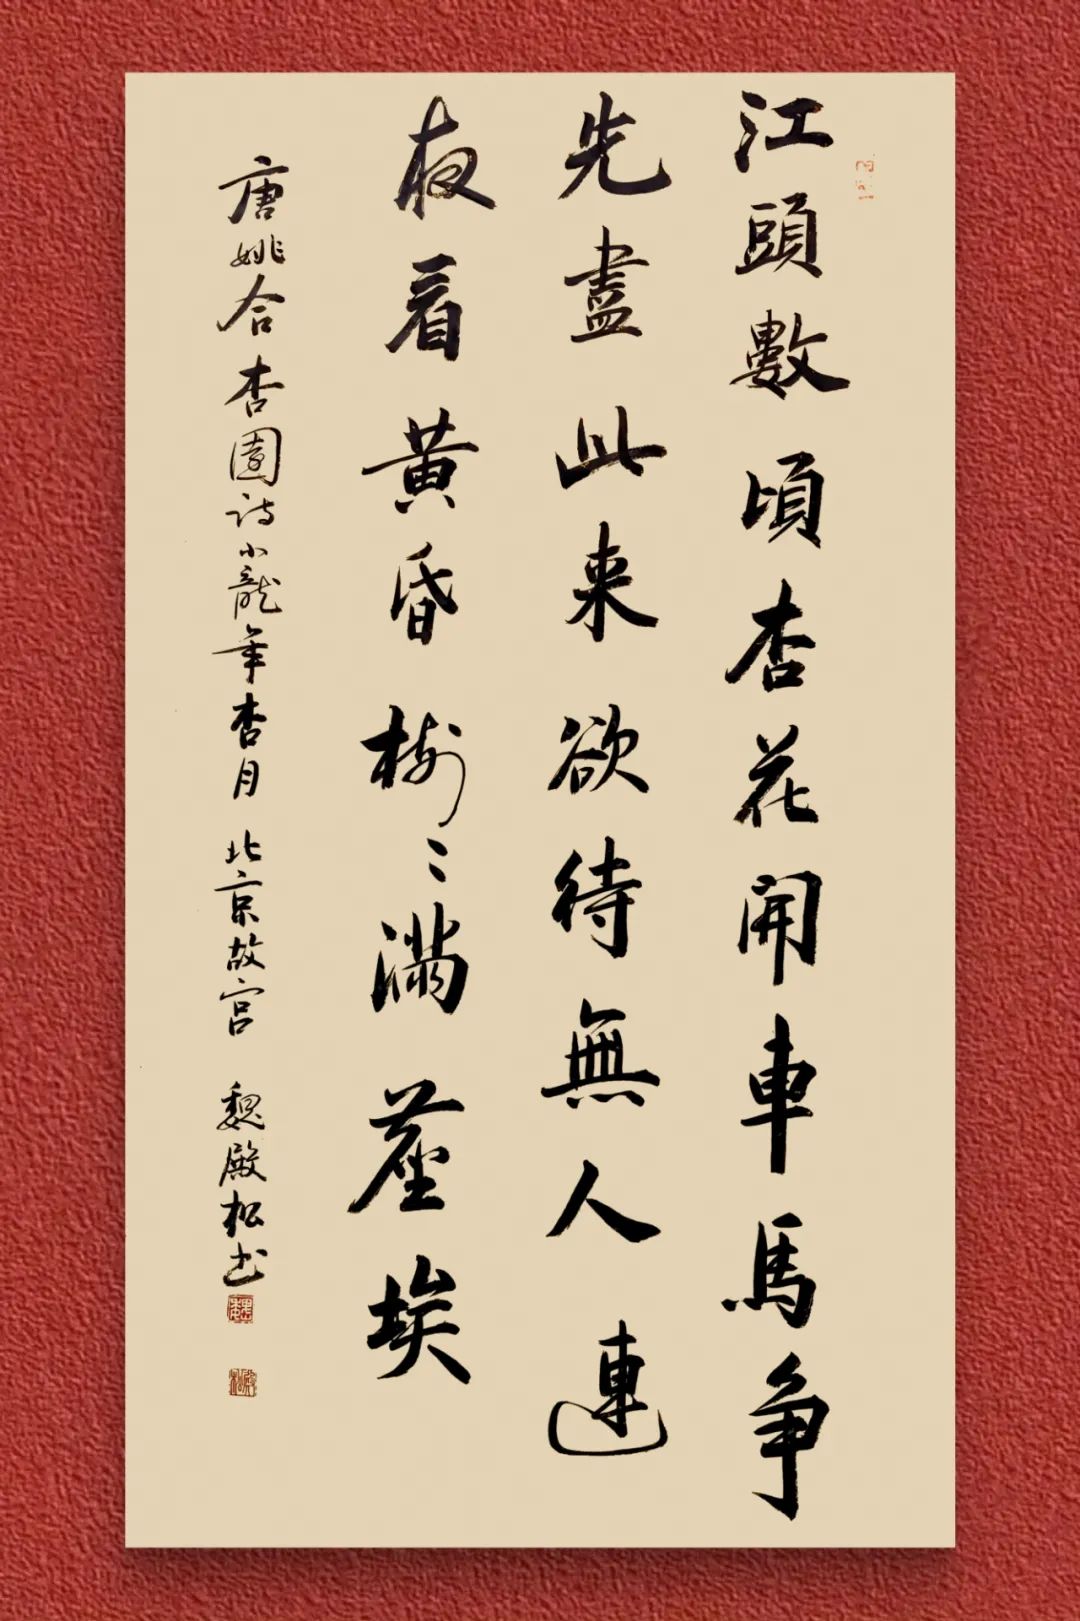 江頭數頃杏花開車馬争
先盡此来欲待無人連
夜看黄昏樹〻滿塵埃
唐姚合杏園詩小龍年杏月北京故宫魏殿松书